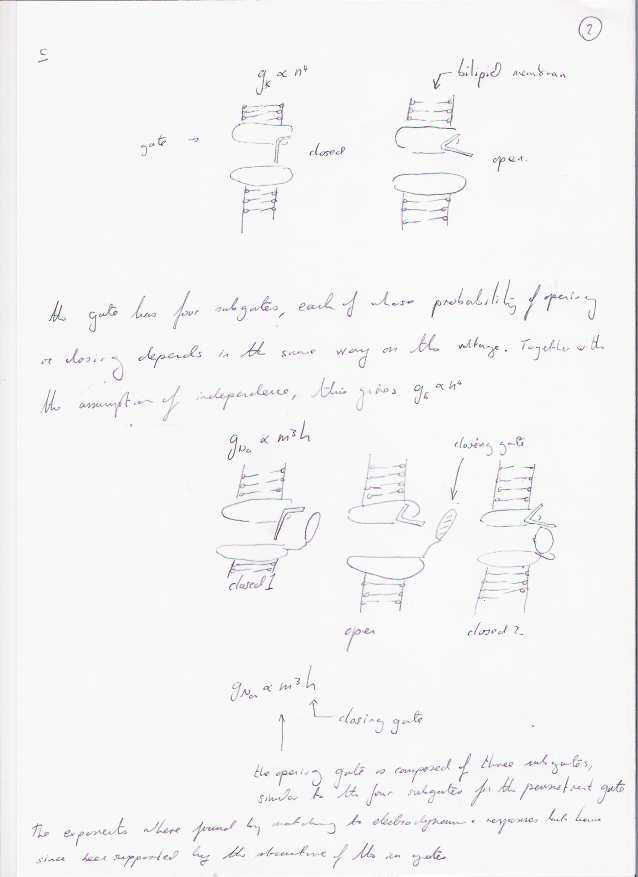 2
c
g_K ∝ n⁴
bilipid membran
gate →
closed
open.
the gate has four subgates, each of whose probability of opening
or closing depends in the same way on the voltage. Together with
the assumption of independence, this gives g_K ∝ n⁴
g_Na ∝ m³h
closing gate
closed 1
open
closed 2.
g_Na ∝ m³h
closing gate
the opening gate is composed of three subgates,
similar to the four subgates for the persistent gate
The exponents where found by matching to responses but have
since been supported by the structure of the ion gates